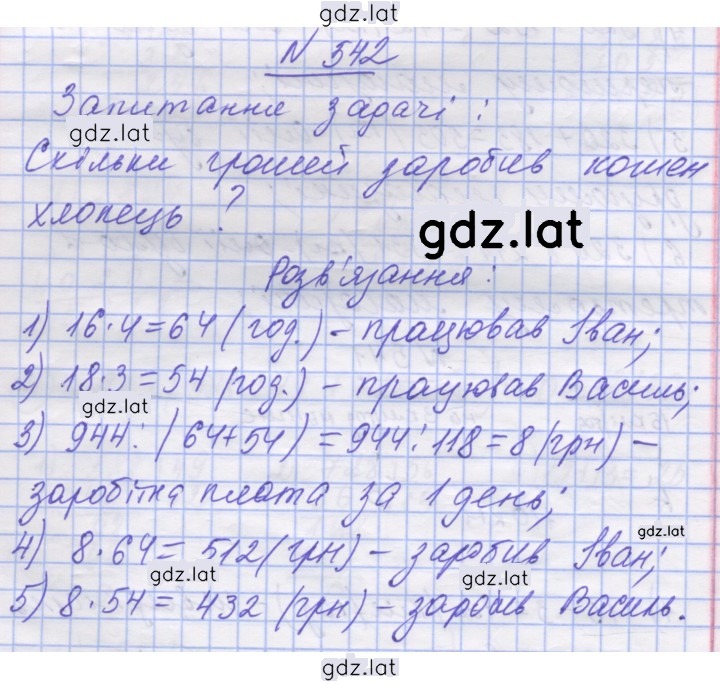 gdz.lat
N 542
Запитання задачі:
gdz.lat
Скільки грошей заробив кожен
хлопець?
gdz.lat
Розв'язання:
1) 16·4=64 (год.) - працював Іван;
2) 18·3=54 (год.) - працював Василь;
gdz.lat
3) 944:(64+54)=944:118=8 (грн) -
заробітна плата за 1 день;
gdz.lat
4) 8·64=512 (грн) - заробив Іван;
gdz.lat gdz.lat
5) 8·54=432 (грн) - заробив Василь.
gdz.lat